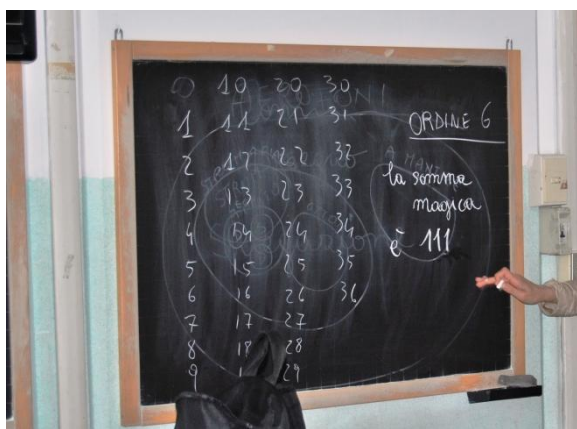 0 10 20 30
1 11 21 31
2 12 22 32
3 13 23 33
4 14 24 34
5 15 25 35
6 16 26 36
7 17 27
8 18 28
9 1 29
ORDINE 6
la somma
magica
è 111